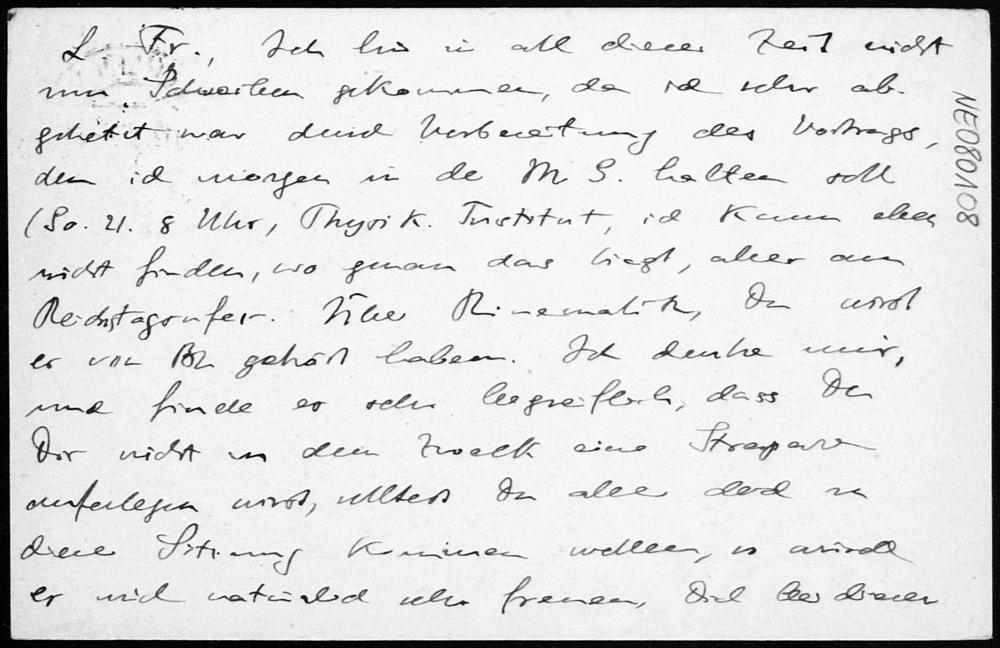 L. Fr., Ich bin in all dieser Zeit nicht
zum Schreiben gekommen, da ich sehr ab-
gehetzt war durch Vorbereitung des Vortrags,
den ich morgen in der M G. halten soll
(So. 21. 8 Uhr, Physik. Institut, ich kann eben
nicht finden, wo genau das liegt, aber am
Reichstagsufer. Über Kinematik, Du wirst
es von gehört haben. Ich denke mir,
und finde es sehr begreiflich, dass Du
Dir nicht zu dem Zweck eine Strapaze
auferlegen wirst, solltest Du aber doch zu
dieser Sitzung kommen wollen, so würde
es mich natürlich sehr freuen, Dich bei dieser
NE080108